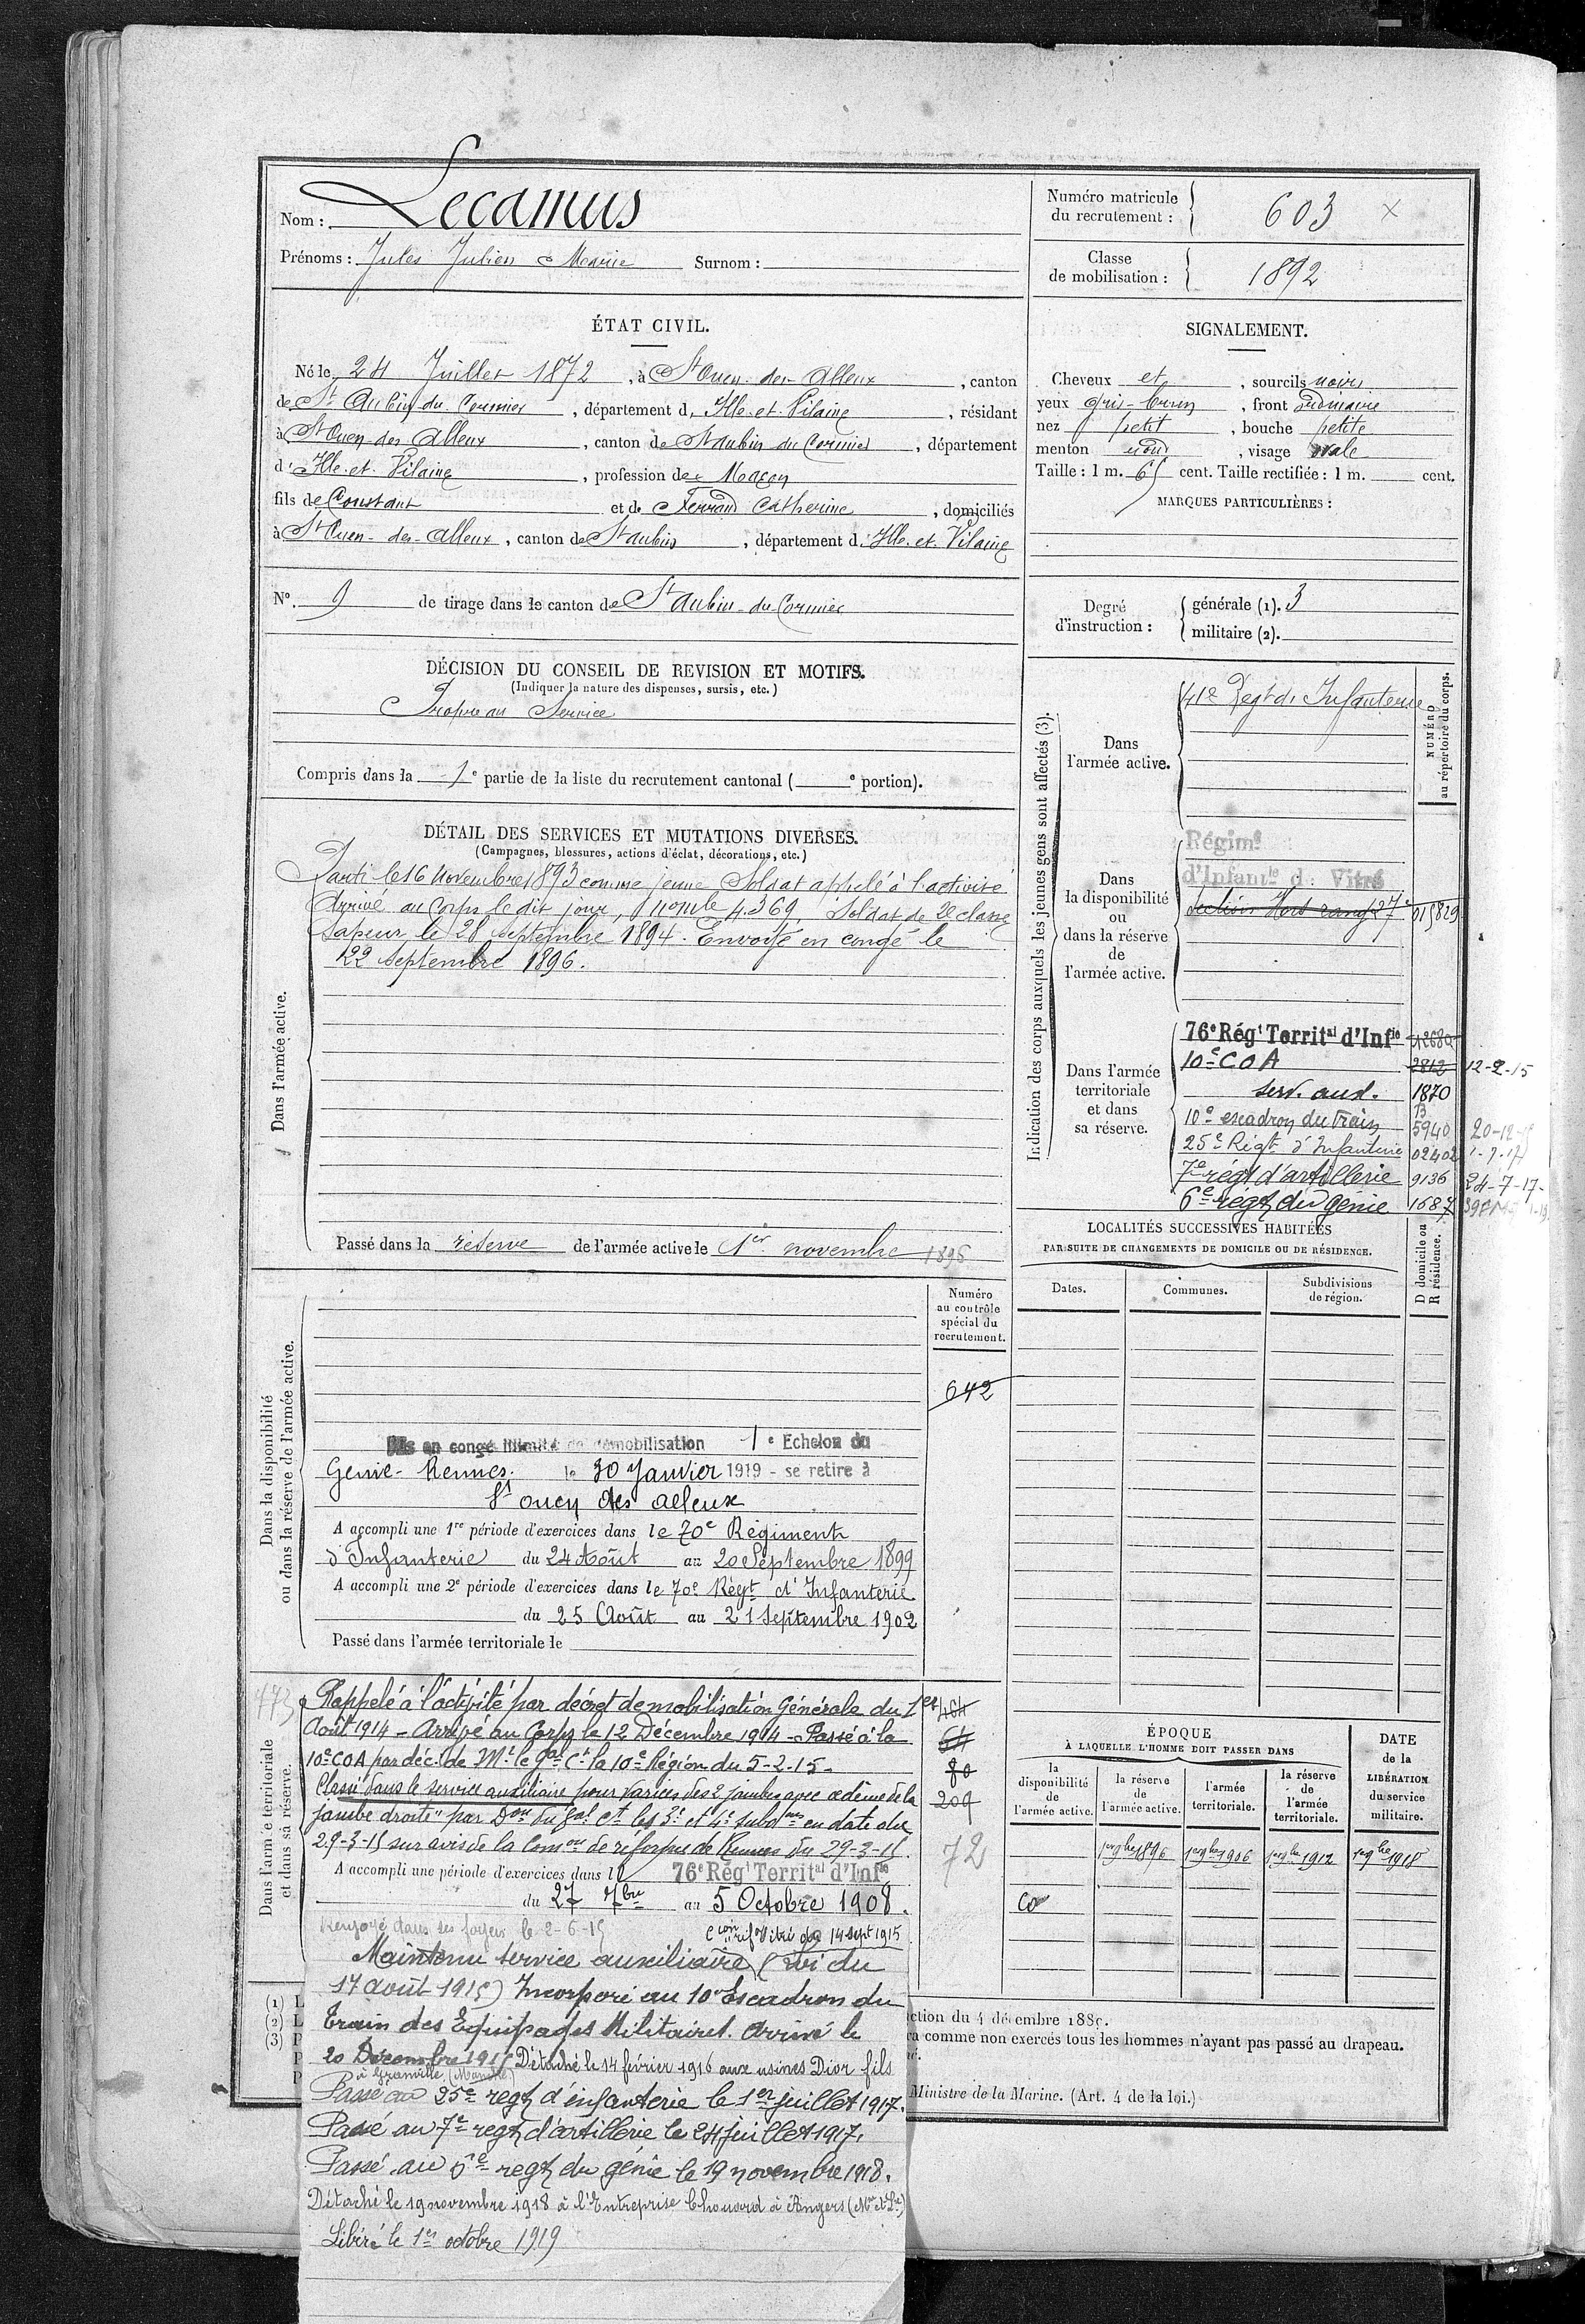 Nom : Lecamus
Prénoms : Jules Julien Marie Surnom :
Numéro matricule du recrutement : 603 X
Classe de mobilisation : 1892
ÉTAT CIVIL.
Né le 24 Juillet 1872, à St Ouen-des-Alleux, canton
de St Aubin du Cormier, département d'Ille-et-Vilaine, résidant
à St Ouen des Alleux, canton de St Aubin du Cormier, département
d'Ille-et-Vilaine, profession de Maçon
fils de Constant et de Ferrand Catherine, domiciliés
à St Ouen-des-Alleux, canton de St Aubin, département d'Ille-et-Vilaine
SIGNALEMENT.
Cheveux et, sourcils noirs
yeux gris-brun, front ordinaire
nez petit, bouche petite
menton rond, visage ovale
Taille : 1 m. 65 cent. Taille rectifiée : 1 m. cent.
MARQUES PARTICULIÈRES :
N° 9 de tirage dans le canton de St Aubin-du-Cormier
Degré d'instruction : générale (1). 3
militaire (2).
DÉCISION DU CONSEIL DE REVISION ET MOTIFS.
(Indiquer la nature des dispenses, sursis, etc.)
Propre au Service
Compris dans la 1e partie de la liste du recrutement cantonal ( e portion).
DÉTAIL DES SERVICES ET MUTATIONS DIVERSES.
(Campagnes, blessures, actions d'éclat, décorations, etc.)
Dans l'armée active.
Parti le 16 novembre 1893 comme jeune Soldat appelé à l'activité
Arrivé au Corps le dit jour, n° mle 4.369, Soldat de 2e classe
Sapeur le 28 septembre 1894. Envoyé en congé le
22 septembre 1896.
Passé dans la réserve de l'armée active le 1er novembre 1896
Indication des corps auxquels les jeunes gens sont affectés (3).
NUMÉRO au répertoire du corps.
Dans l'armée active.
41e Régt d'Infanterie
Dans la disponibilité ou dans la réserve de l'armée active.
Régimt
d'Infanie de Vitré
Section Hors rang 27e 015829
Dans l'armée territoriale et dans sa réserve.
76e Régt Territal d'Infie 12680
10e COA 2812 12-2-15
serv. aux. 1870
10e escadron du Train 13 5940 20-12-15
25e Régt d'Infanterie 02402 1-7-17
7e régt d'artillerie 9136 24-7-17
6e régt du génie 1687
LOCALITÉS SUCCESSIVES HABITÉES
PAR SUITE DE CHANGEMENTS DE DOMICILE OU DE RÉSIDENCE.
D domicile ou R résidence.
Dates. Communes. Subdivisions de région.
Numéro au contrôle spécial du recrutement.
642
Dans la disponibilité ou dans la réserve de l'armée active.
Mis en congé illimité de démobilisation 1e Echelon du
Génie-Rennes. le 30 Janvier 1919 - se retire à
St ouen des alleux
A accompli une 1re période d'exercices dans le 70e Régiment
d'Infanterie du 24 Août au 20 Septembre 1899
A accompli une 2e période d'exercices dans le 70e Régt d'Infanterie
du 25 Août au 21 Septembre 1902
Passé dans l'armée territoriale le
Dans l'armée territoriale et dans sa réserve.
773
Rappelé à l'activité par décret de mobilisation Générale du 1er
Août 1914 - Arrivé au Corps le 12 Décembre 1914 - Passé à la
10e COA par déc. de Mr le Gal Ct la 10e Région du 5-2-15-
Classé dans le service auxiliaire pour varices des 2 jambes avec œdème de la
jambe droite" par Don du Gal Ct les 3e et 4e subdons en date du
29-3-15 sur avis de la Comon de réforme de Rennes du 29-3-15.
A accompli une période d'exercices dans le 76e Régt Territal d'Infie
du 27 7bre au 5 Octobre 1908.
54
80
209
72
Renvoyé dans ses foyers le 2-6-15
Vitré du 14 Sept 1915
Maintenu service auxiliaire (Loi du
17 août 1915) Incorporé au 10e Escadron du
train des Equipages Militaires. Arrivé le
20 Décembre 1915 Détaché le 14 février 1916 aux usines Dior fils
à Granville (Manche)
Passé au 25e regt d'infanterie le 1er juillet 1917.
Passé au 7e regt d'artillerie le 24 juillet 1917.
Passé au 6e regt du génie le 19 novembre 1918.
Détaché le 19 novembre 1918 à l'Entreprise Chouard à Angers (Mne et Lre)
Libéré le 1er octobre 1919
ÉPOQUE
À LAQUELLE L'HOMME DOIT PASSER DANS
la disponibilité de l'armée active.
la réserve de l'armée active.
l'armée territoriale.
la réserve de l'armée territoriale.
DATE de la LIBÉRATION du service militaire.
1er 9bre 1896 1er 9bre 1906 1er 9bre 1912 1er 9bre 1918
Co
(1) L
(2) L
(3) P
P
P
ction du 4 décembre 1889.
ra comme non exercés tous les hommes n'ayant pas passé au drapeau.
Ministre de la Marine. (Art. 4 de la loi.)